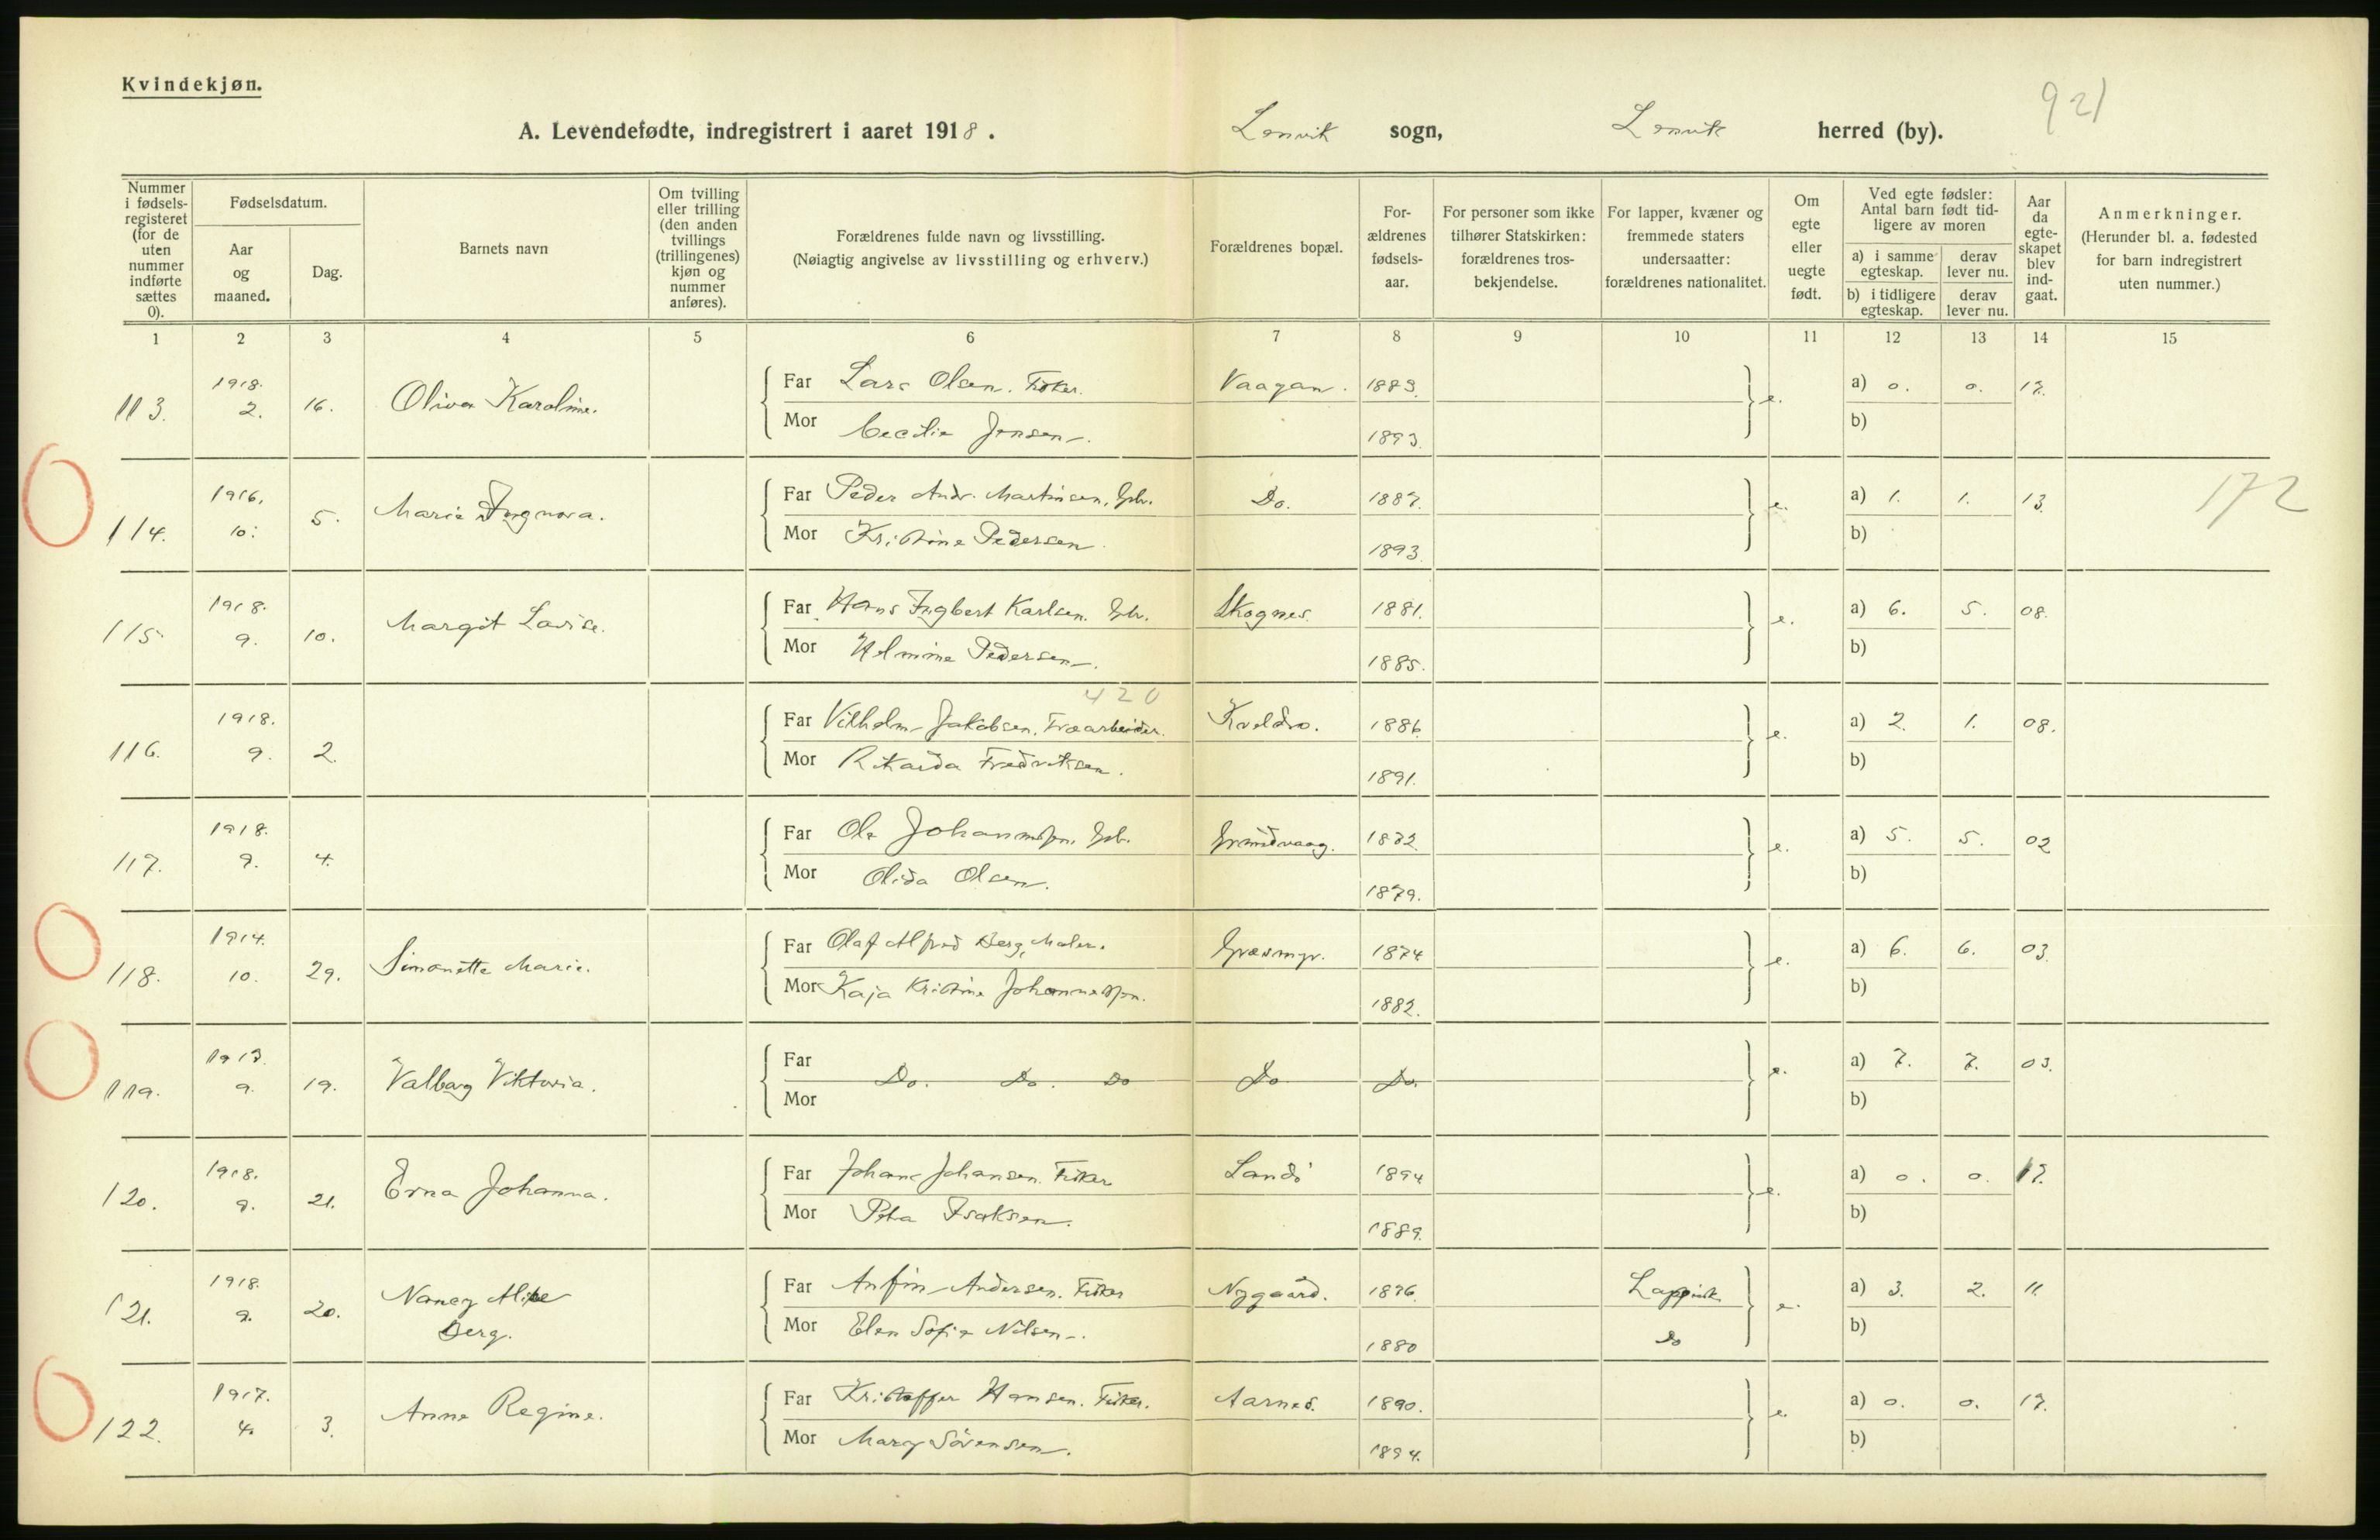 Kvindekjøn.
921
A. Levendefødte, indregistrert i aaret 1918. Lenvik sogn, Lenvik herred (by).
Nummer i fødselsregisteret (for de uten nummer indførte sættes 0).
Fødselsdatum.
Aar og maaned.
Dag.
Barnets navn
Om tvilling eller trilling (den anden tvillings (trillingenes) kjøn og nummer anføres).
Forældrenes fulde navn og livsstilling.
(Nøiagtig angivelse av livsstilling og erhverv.)
Forældrenes bopæl.
Forældrenes fødselsaar.
For personer som ikke tilhører Statskirken: forældrenes trosbekjendelse.
For lapper, kvæner og fremmede staters undersaatter: forældrenes nationalitet.
Om egte eller uegte født.
Ved egte fødsler: Antal barn født tidligere av moren
a) i samme egteskap. derav lever nu.
b) i tidligere egteskap. derav lever nu.
Aar da egteskapet blev indgaat.
Anmerkninger.
(Herunder bl. a. fødested for barn indregistrert uten nummer.)
1 2 3 4 5 6 7 8 9 10 11 12 13 14 15
113. 1918. 2. 16. Oliva Karoline. Far Lars Olsen. Fisker. Vaagan. 1883. e. a) 0. 0. 17.
Mor Cecilie Jensen. 1893. b)
114. 1916. 10. 5. Marie Ingnora. Far Peder Andr. Martinsen, Gbr. Do. 1887. e. a) 1. 1. 13.
Mor Kristine Pedersen. 1893. b)
172
115. 1918. 9. 10. Margit Lovise. Far Hans Ingbert Karlsen. Gbr. Skognes. 1881. e. a) 6. 5. 08.
Mor Helmine Pedersen. 1885. b)
420
116. 1918. 9. 2. Far Vilhelm Jakobsen. Træarbeider. Kveldro. 1886. e. a) 2. 1. 08.
Mor Rikarda Fredriksen. 1891. b)
117. 1918. 9. 4. Far Ole Johannessen. Gbr. 1872. e. a) 5. 5. 02
Mor Olida Olsen. 1879. b)
118. 1914. 10. 29. Simonette Marie. Far Olaf Alfred Berg, Maler. Græsmyr. 1874 e. a) 6. 6. 03.
Mor Kaja Kristine Johannessen. 1882. b)
119. 1917. 9. 19. Valborg Viktoria. Far Do. Do. Do Do Do. e. a) 7. 7. 03.
Mor b)
120. 1918. 9. 21. Erna Johanna. Far Johan Johansen. Fisker Sandö 1894. e. a) 0. 0. 17.
Mor Petra Isaksen. 1889. b)
121. 1918. 9. 20. Nancy Alise Far Anfin Andersen. Fisker Nygaard. 1876. Lappisk e. a) 3. 2. 11.
Berg. Mor Elen Sofie Nilsen. 1880 Do b)
122. 1917. 4. 3. Anne Regine. Far Kristoffer Hansen. Fisker. Aarnes. 1890. e. a) 0. 0. 17.
Mor Mary Sörensen. 1894. b)